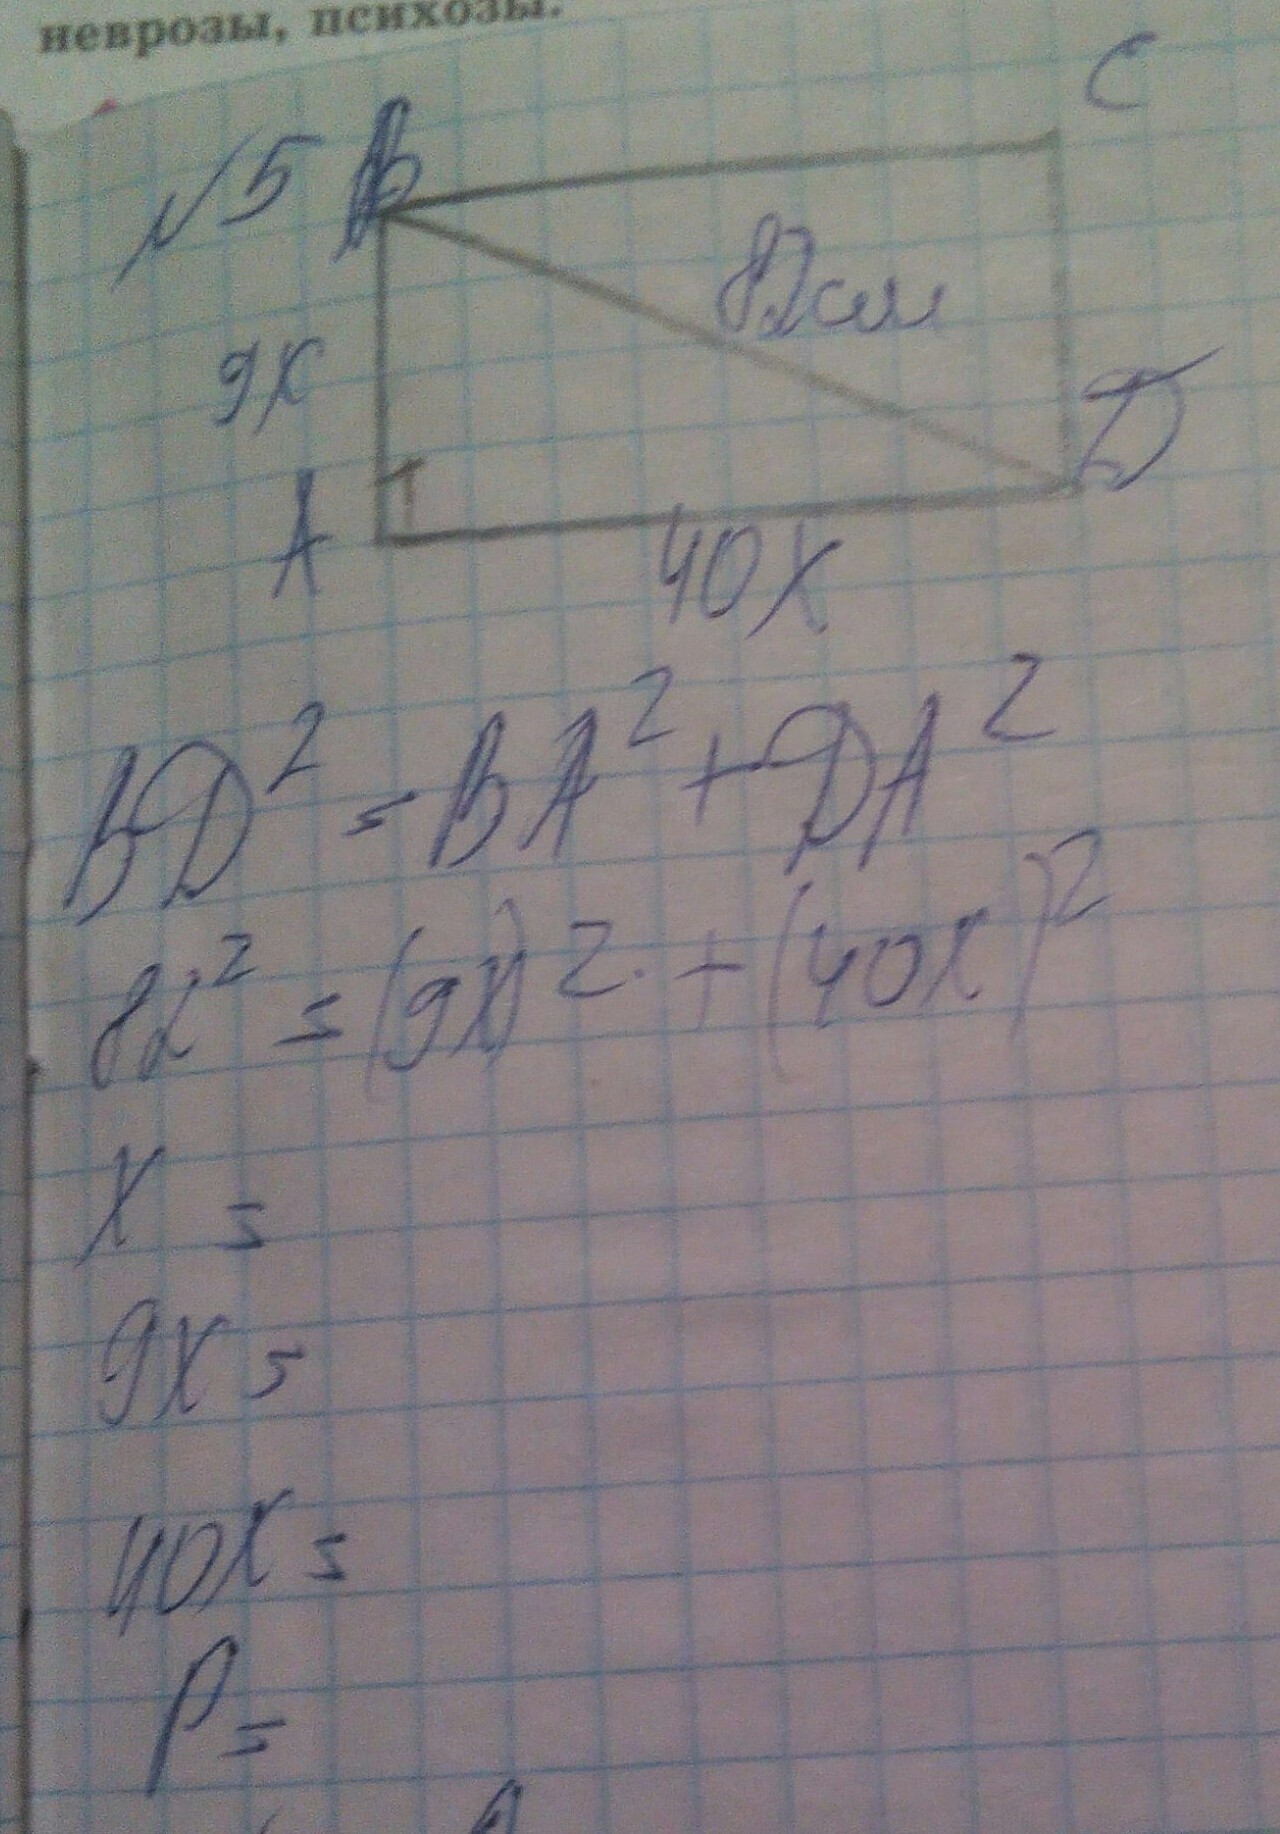 неврозы, психозы.
№5 B
C
82см
9x
D
A
40x
BD² = BA² + DA²
82² = (9x)² + (40x)²
x =
9x =
40x =
P =